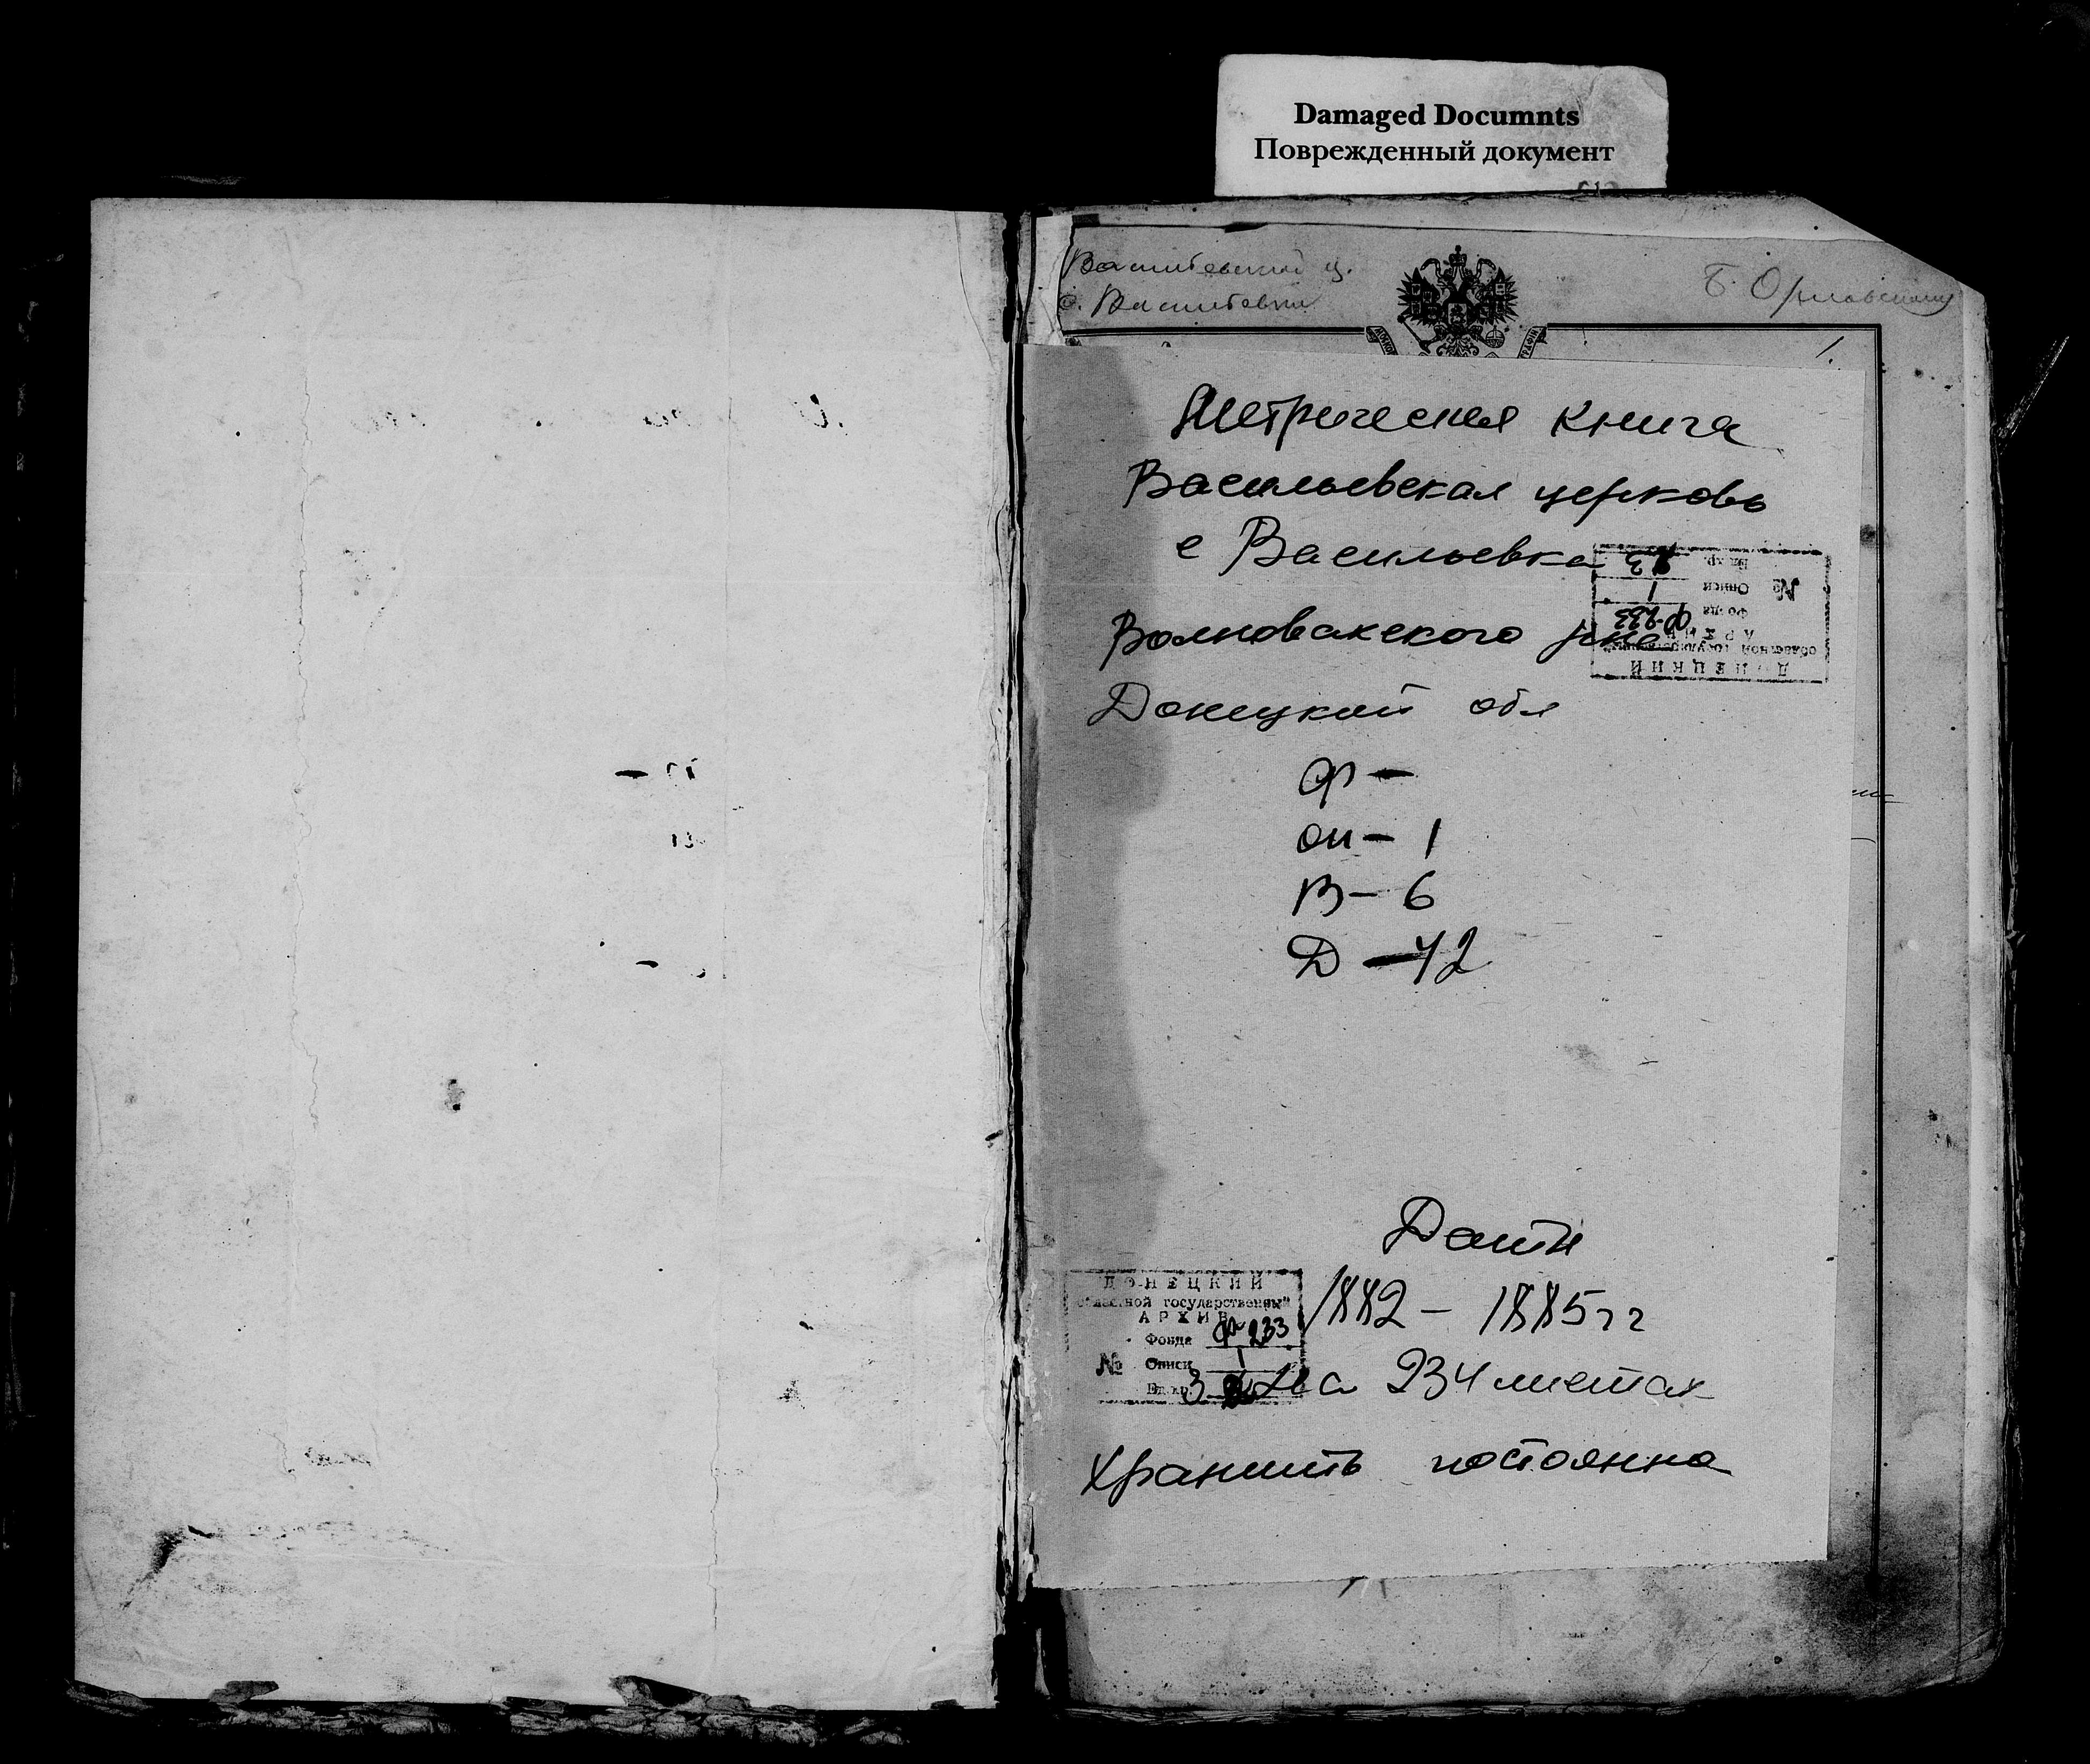 Damaged Documnts
Поврежденный документ
Б. Орловскому
1.
Метрическая книга
Васильевская церковь
с Васильевка
Волновахского р-на
Донецкой обл
Ф —
оп — 1
В — 6
Д — 42
ДОНЕЦКИЙ
областной государственный
АРХИВ
Фонда Ф-233
№ Описи 1
Ед. хр. 3
Даты
1882 — 1885 гг
ДОНЕЦКИЙ
областной государственный
АРХИВ
Фонда Ф-233
№ Описи 1
Ед. хр. 3
На 234 листах
Хранить постоянно